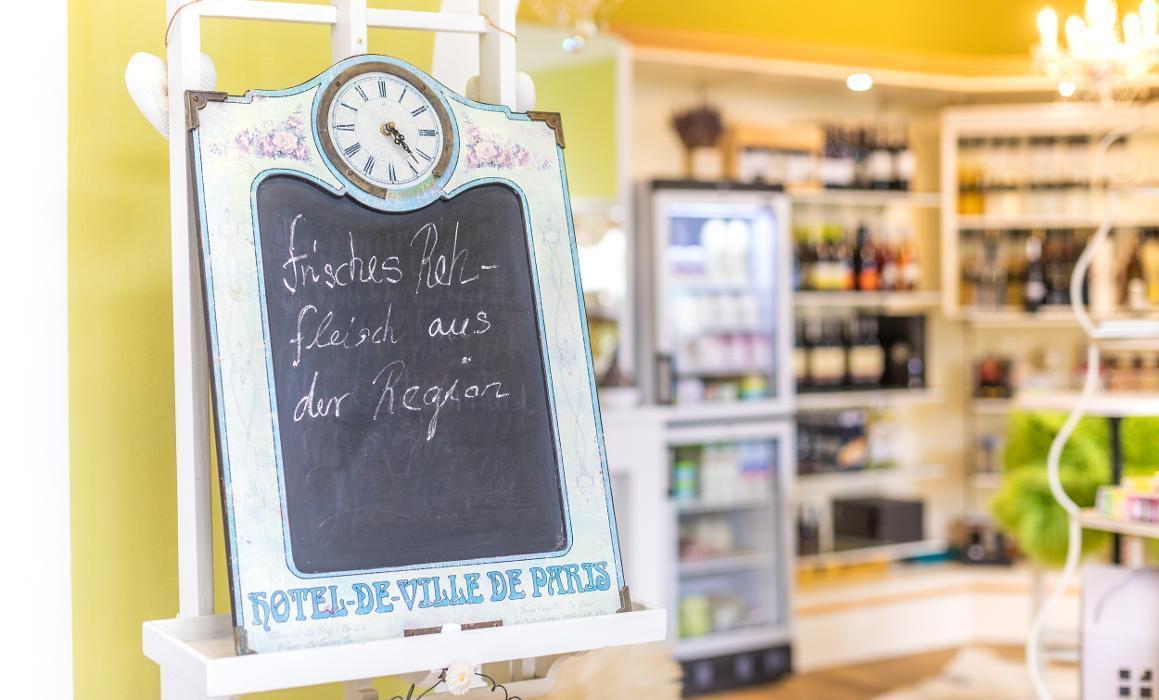 frisches Reh-
fleisch aus
der Region
HOTEL-DE-VILLE DE PARIS